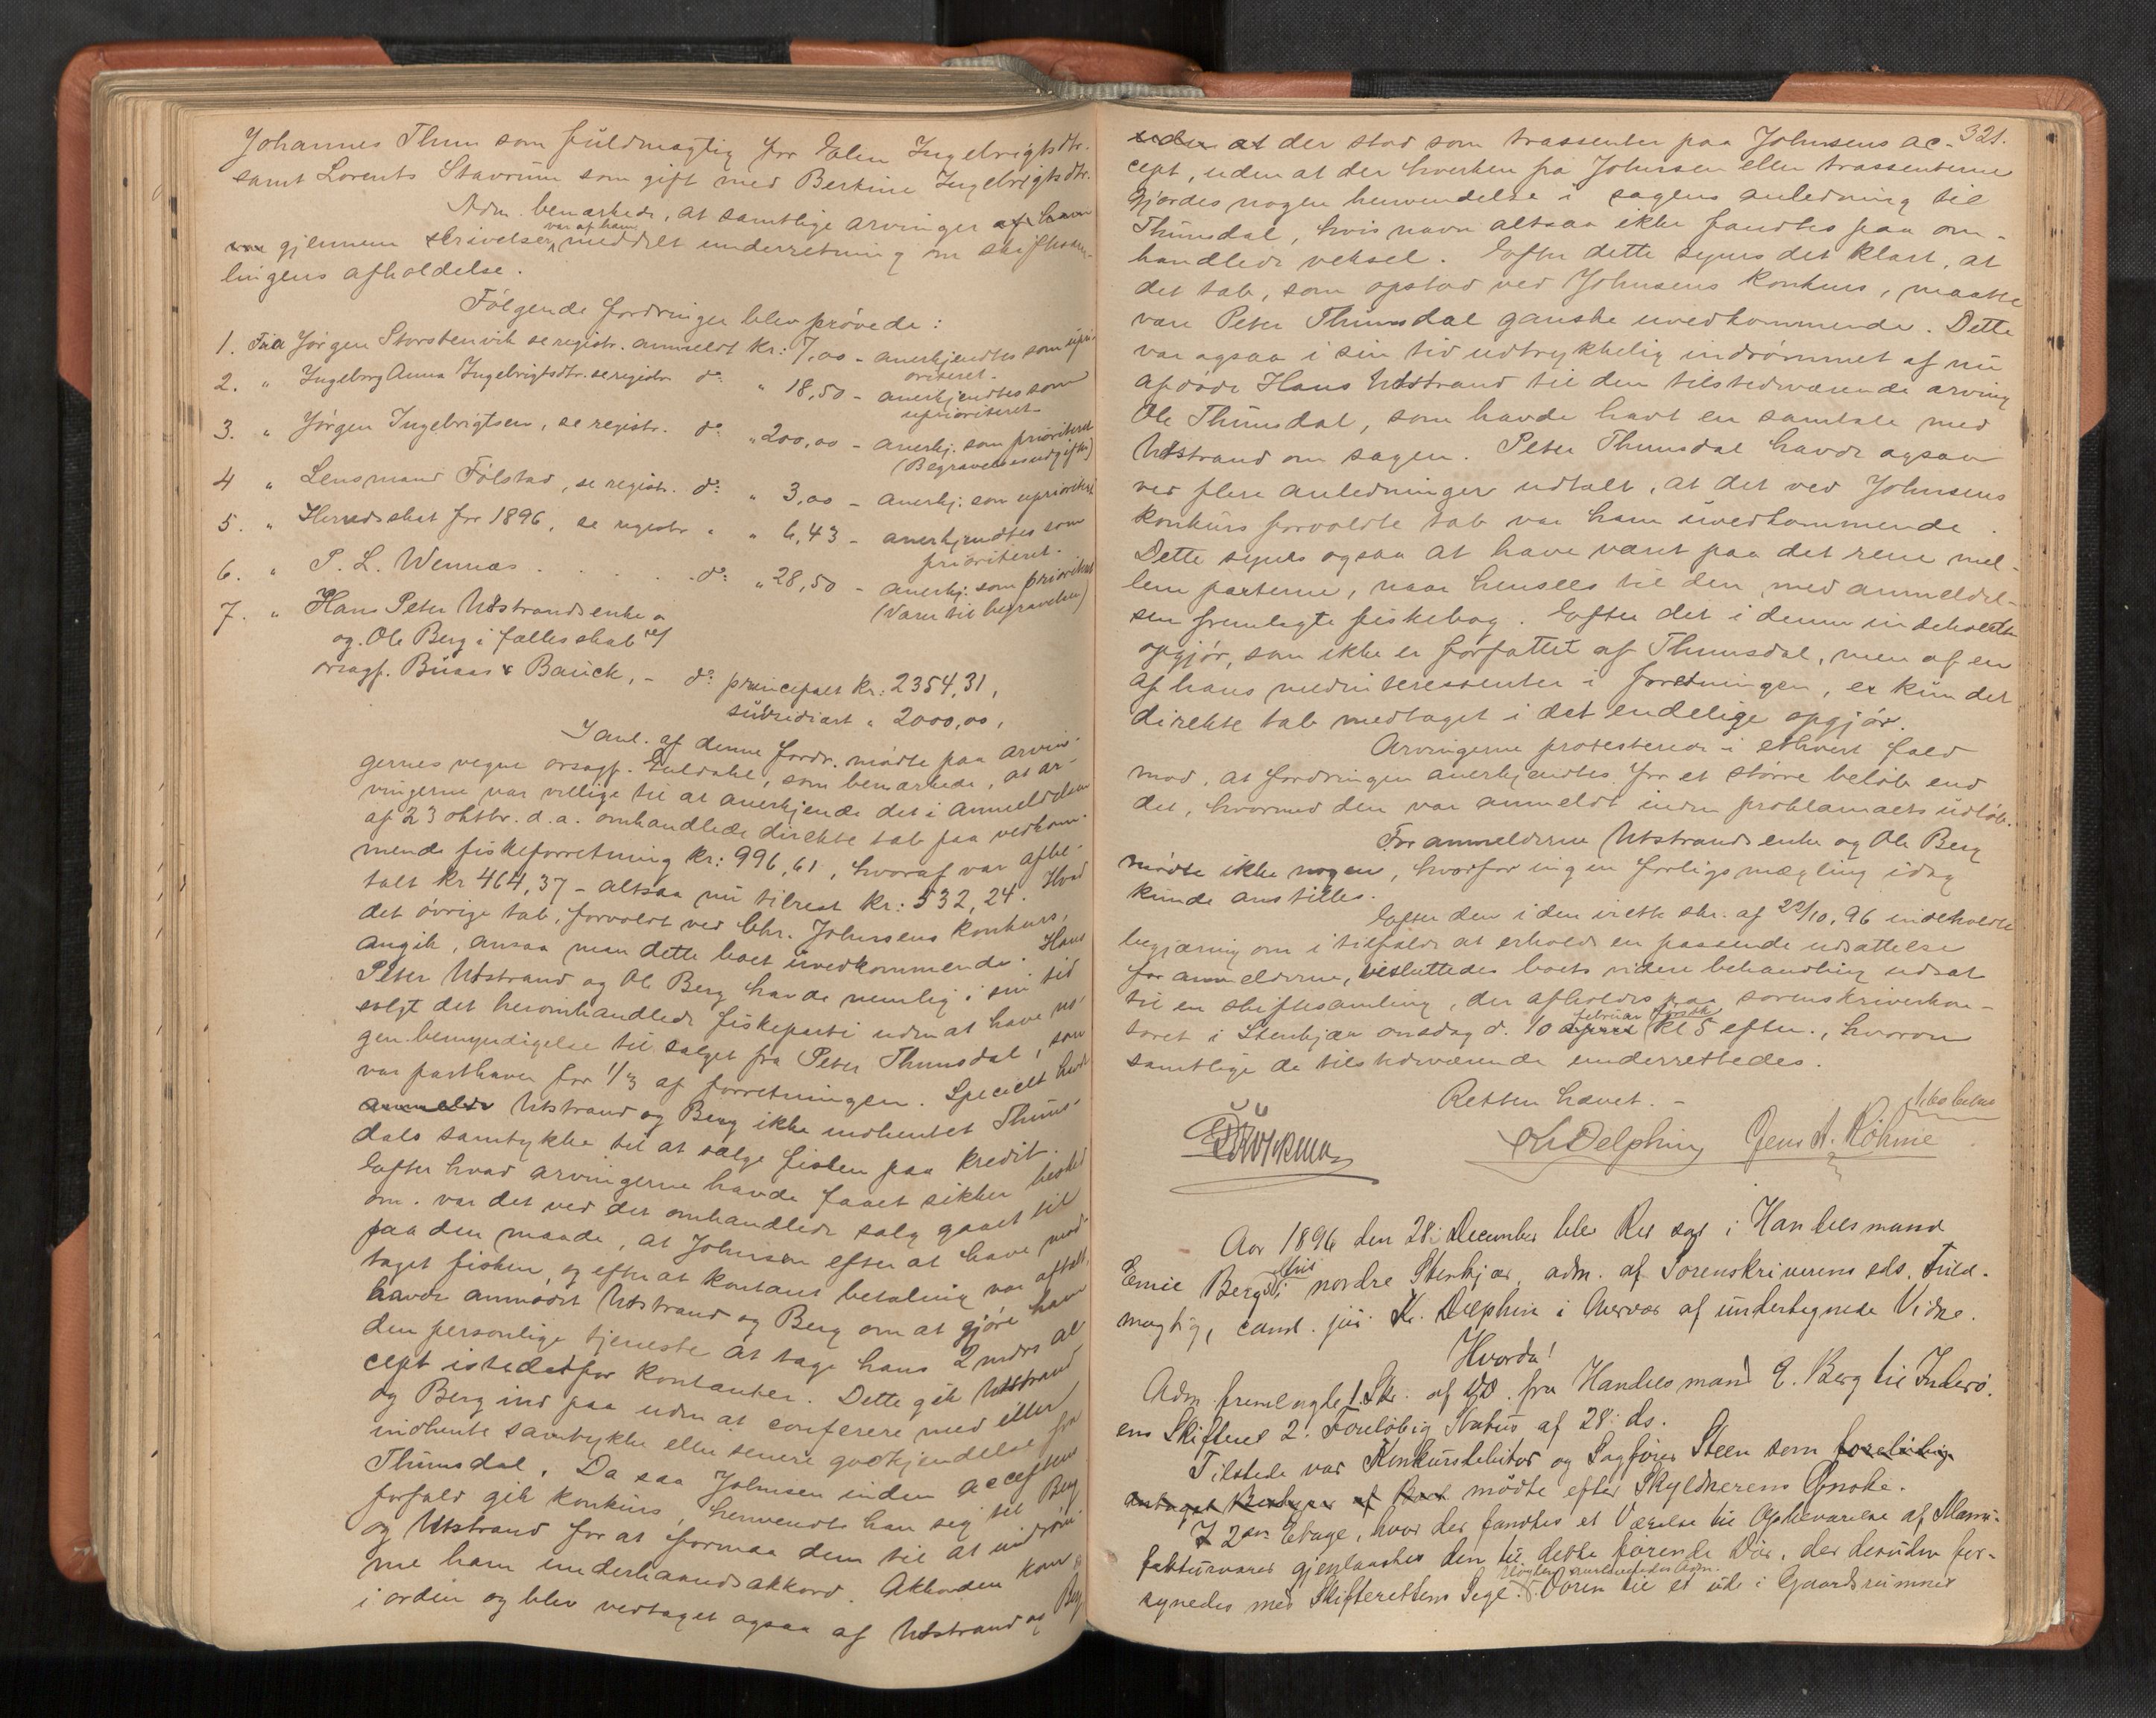 Johannes Thun som fuldmægtig for Elen Ingebrigtsdtr.
samt Lorents Stavrum som gift med Berkine Ingebrigtsdtr.
Adm. bemærkede, at samtlige arvinger af ham
var gjennem skrivelser var af ham meddelt underretning om skiftesam-
lingens afholdelse.
Følgende fordringer blev prøvede:
1. Fra Jørgen Storstenvik se registr. anmeldt Kr: 7,00 - anerkjendtes som upri-
oriteret.
2. " Ingeborg Anna Ingebrigtsdtr. se registr. do: " 18,50 - anerkjendtes som
uprioriteret
3. " Jørgen Ingebrigtsen, se registr. do: " 200,00 - anerkj. som prioriteret
(Begravelsesudgifter)
4 " Lensmand Følstad, se registr. do: " 3,00 - anerkj: som uprioriteret
5. " Herredsskat for 1896, se registr " " 6,43 - anerkjendtes som
prioriteret.
6. " P. L. Wennæs . . . . . do: " 28,50 - anerkj: som prioriteret
(Varer til begravelsen)
7. " Hans Peter Utstrands enke
og Ole Berg i fællesskab v/
orsagf. Buaas & Bauck, - do: principalt Kr: 2354,31,
subsidiært " 2000,00,
I anl. af denne fordr. mødte paa arvin-
gernes vegne orsagf. Guldahl, som bemærkede, at ar-
vingerne var villige til at anerkjende det i anmeldelsen
af 23 oktbr. d.a. omhandlede direkte tab paa vedkom-
mende fiskeforretning kr: 996,61, hvoraf var afbe-
talt kr 464,37 - altsaa nu tilrest kr: 532,24. Hvad
det øvrige tab, forvoldt ved Chr. Johnsens konkurs,
angik, ansaa man dette boet uvedkommende. Hans
Peter Utstrand og Ole Berg havde nemlig i sin tid
solgt det heromhandlede fiskeparti uden at have no-
gen bemyndigelse til salget fra Peter Thunsdal, som
var parthaver for 1/3 af forretningen. Specielt havde
anmeldt Utstrand og Berg ikke indhentet Thuns-
dals samtykke til at sælge fisken paa kredit.
Efter hvad arvingerne havde faaet sikker besked
om. var det ved det omhandlede salg gaaet til
paa den maade, at Johnsen efter at have mod-
taget fisken, og efter at kontant betaling var aftalt,
havde anmodet Utstrand og Berg om at gjøre ham
den personlige tjeneste at tage hans 2 mdrs ac-
cept istedetfor kontanter. Dette gik Utstrand
og Berg ind paa uden at conferere med eller
indhente samtykke eller senere godkjendelse fra
Thunsdal. Da saa Johnsen inden acceptens
forfald gik konkurs, henvendte han sig til Berg
og Utstrand for at formaa dem til at indrøm-
me ham underhaandsakkord. Akkorden kom
i orden og blev vedtaget ogsaa af Utstrand og Berg
321.
uden at der stod som trassenter paa Johnsens ac-
cept, uden at der hverken fra Johnsen eller trassenterne
gjordes nogen henvendelse i sagens anledning til
Thunsdal, hvis navn altsaa ikke fandtes paa om-
handlede veksel. Efter dette synes det klart, at
det tab, som opstod ved Johnsens konkurs, maatte
være Peter Thunsdal ganske uvedkommende. Dette
var ogsaa i sin tid udtrykkelig indrømmet af nu
afdøde Hans Utstrand til den tilstedeværende arving
Ole Thunsdal, som havde havt en samtale med
Utstrand om sagen. Peter Thunsdal havde ogsaa
ved flere anledninger udtalt, at det ved Johnsens
konkurs forvoldte tab var ham uvedkommende.
Dette synes ogsaa at have været paa det rene mel-
lem parterne, naar hensees til den med anmeldel-
sen fremlagte fiskebog. Efter det i denne indeholdte
opgjør, som ikke er forfattet af Thunsdal, men af en
af hans medinteressenter i forretningen, er kun det
direkte tab medtaget i det endelige opgjør.
Arvingerne protesterede i ethvert fald
mod, at fordringen anerkjendtes for et større beløb end
det, hvormed den var anmeldt inden proklamaets udløb.
For anmelderne Utstrands enke og Ole Berg
mødte ikke nogen, hvorfor ingen forligsmægling idag
kunde anstilles.
Efter den i den irette skr. af 22/10.96 indeholdte
begjæring om i tilfælde at erholde en passende udsættelse
for anmelderne, besluttedes boets videre behandling udsat
til en skiftesamling, der afholdes paa sorenskriverkon-
toret i Stenkjær onsdag d. 10 april februar førstk. kl 5 efterm., hvorom
samtlige de tilstedeværende underrettedes.
Retten hævet. -
Kr Delphin Jens A. Røhme
Aar 1896 den 28: December blev Ret sat i Handelsmand
Emil Bergs Hus i nordre Stenkjær, adm. af Sorenskriverens eds. Fuld-
mægtig, cand. jur. Kr. Delphin i Overvær af undertegnede Vidne.
Hvorda!
Adm. fremlagde 1. Skr. af D.D. fra Handelsmand E. Berg til Inderø-
ens Skifteret 2. Foreløbig Status af 28: ds.
Tilstede var Konkursdebitor og Sagfører Steen som foreløbig
antaget Bestyrer af Boet mødte efter Skyldnerens Ønske.
I 2den Etage, hvor der fandtes et Værelse til Opbevarelse af Manu-
fakturvarer gjenlaastes den til dette førende Dør, der desuden for-
synedes med Skifterettens Segl. Nøglen medtoges Adm. Døren til et ude i Gaardsrummet